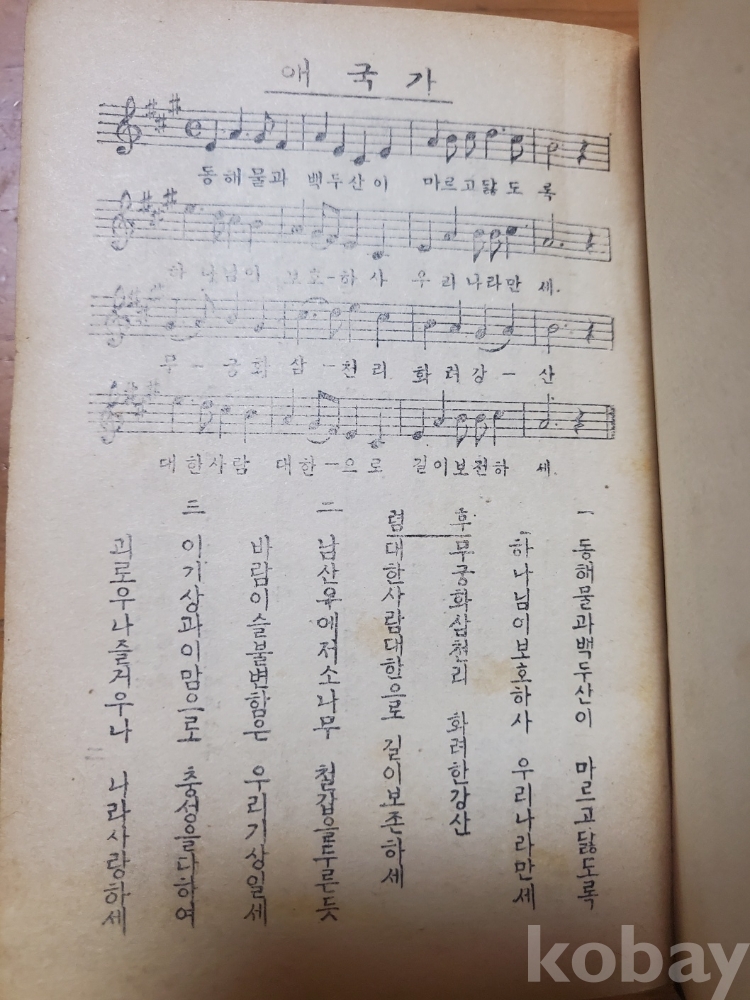 애국가
동해물과 백두산이 마르고닳도록
하나님이 보호-하사 우리나라만 세.
무-궁화 삼-천리 화려강-산
대한사람 대한-으로 길이보전하 세.
一 동해물과백두산이 마르고닳도록
하나님이보호하사 우리나라만세
후렴
무궁화삼천리 화려한강산
대한사람대한으로 길이보존하세
二 남산우에저소나무 철갑을두른듯
바람이슬불변함은 우리기상일세
三 이기상과이맘으로 충성을다하여
괴로우나즐거우나 나라사랑하세
kobay